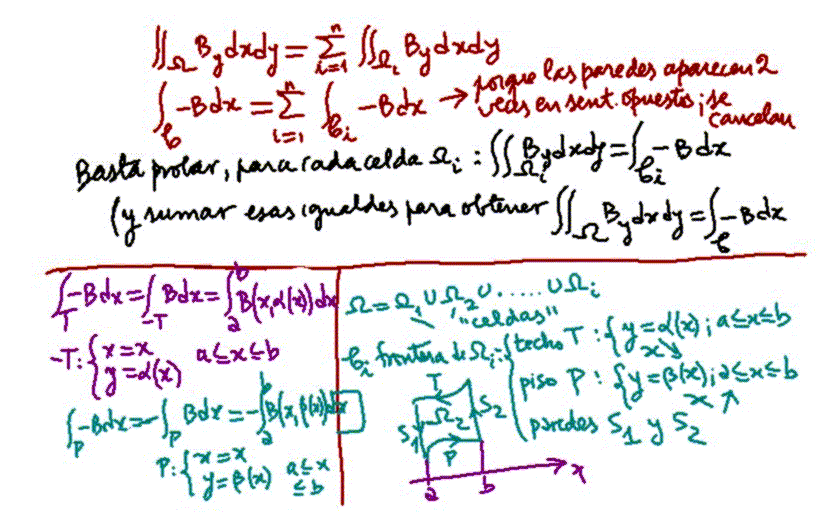 ∬_Ω B_y dxdy = Σ_{i=1}^{n} ∬_{Ω_i} B_y dxdy
∫_𝒞 -Bdx = Σ_{i=1}^{n} ∫_{𝒞_i} -Bdx → porque las paredes aparecen 2
veces en sent. opuestos; se
cancelan
Basta probar, para cada celda Ω_i : ∬_{Ω_i} B_y dxdy = ∫_{𝒞_i} -Bdx
(y sumar esas igualdes para obtener ∬_Ω B_y dxdy = ∫_𝒞 -Bdx
∫_T -Bdx = ∫_{-T} Bdx = ∫_a^b B(x,α(x))dx
-T: { x=x
y=α(x) a≤x≤b
∫_P -Bdx = -∫_P Bdx = -∫_a^b B(x,β(x))dx
P: { x=x
y=β(x) a≤x
≤b
Ω = Ω_1 ∪ Ω_2 ∪ ..... ∪ Ω_i
"celdas"
𝒞_i frontera de Ω_i : { techo T : { y=α(x); a≤x≤b
x
piso P : { y=β(x); a≤x≤b
x
paredes S_1 y S_2
T
S_1 Ω_2 S_2
P
a b x